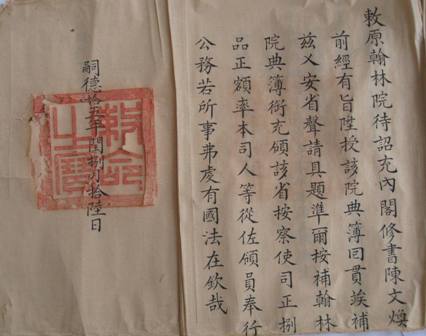 敕原翰林院待詔充內閣修書陳文煥
前經有旨陞授該院典簿回貫竢補
茲乂安省聲請具題準爾按補翰林
院典簿銜充領該省按察使司正捌
品正額率本司人等從佐領員奉行
公務若所事弗虔有國法在欽哉
嗣德拾伍年閏捌月拾陸日
敕命之寶